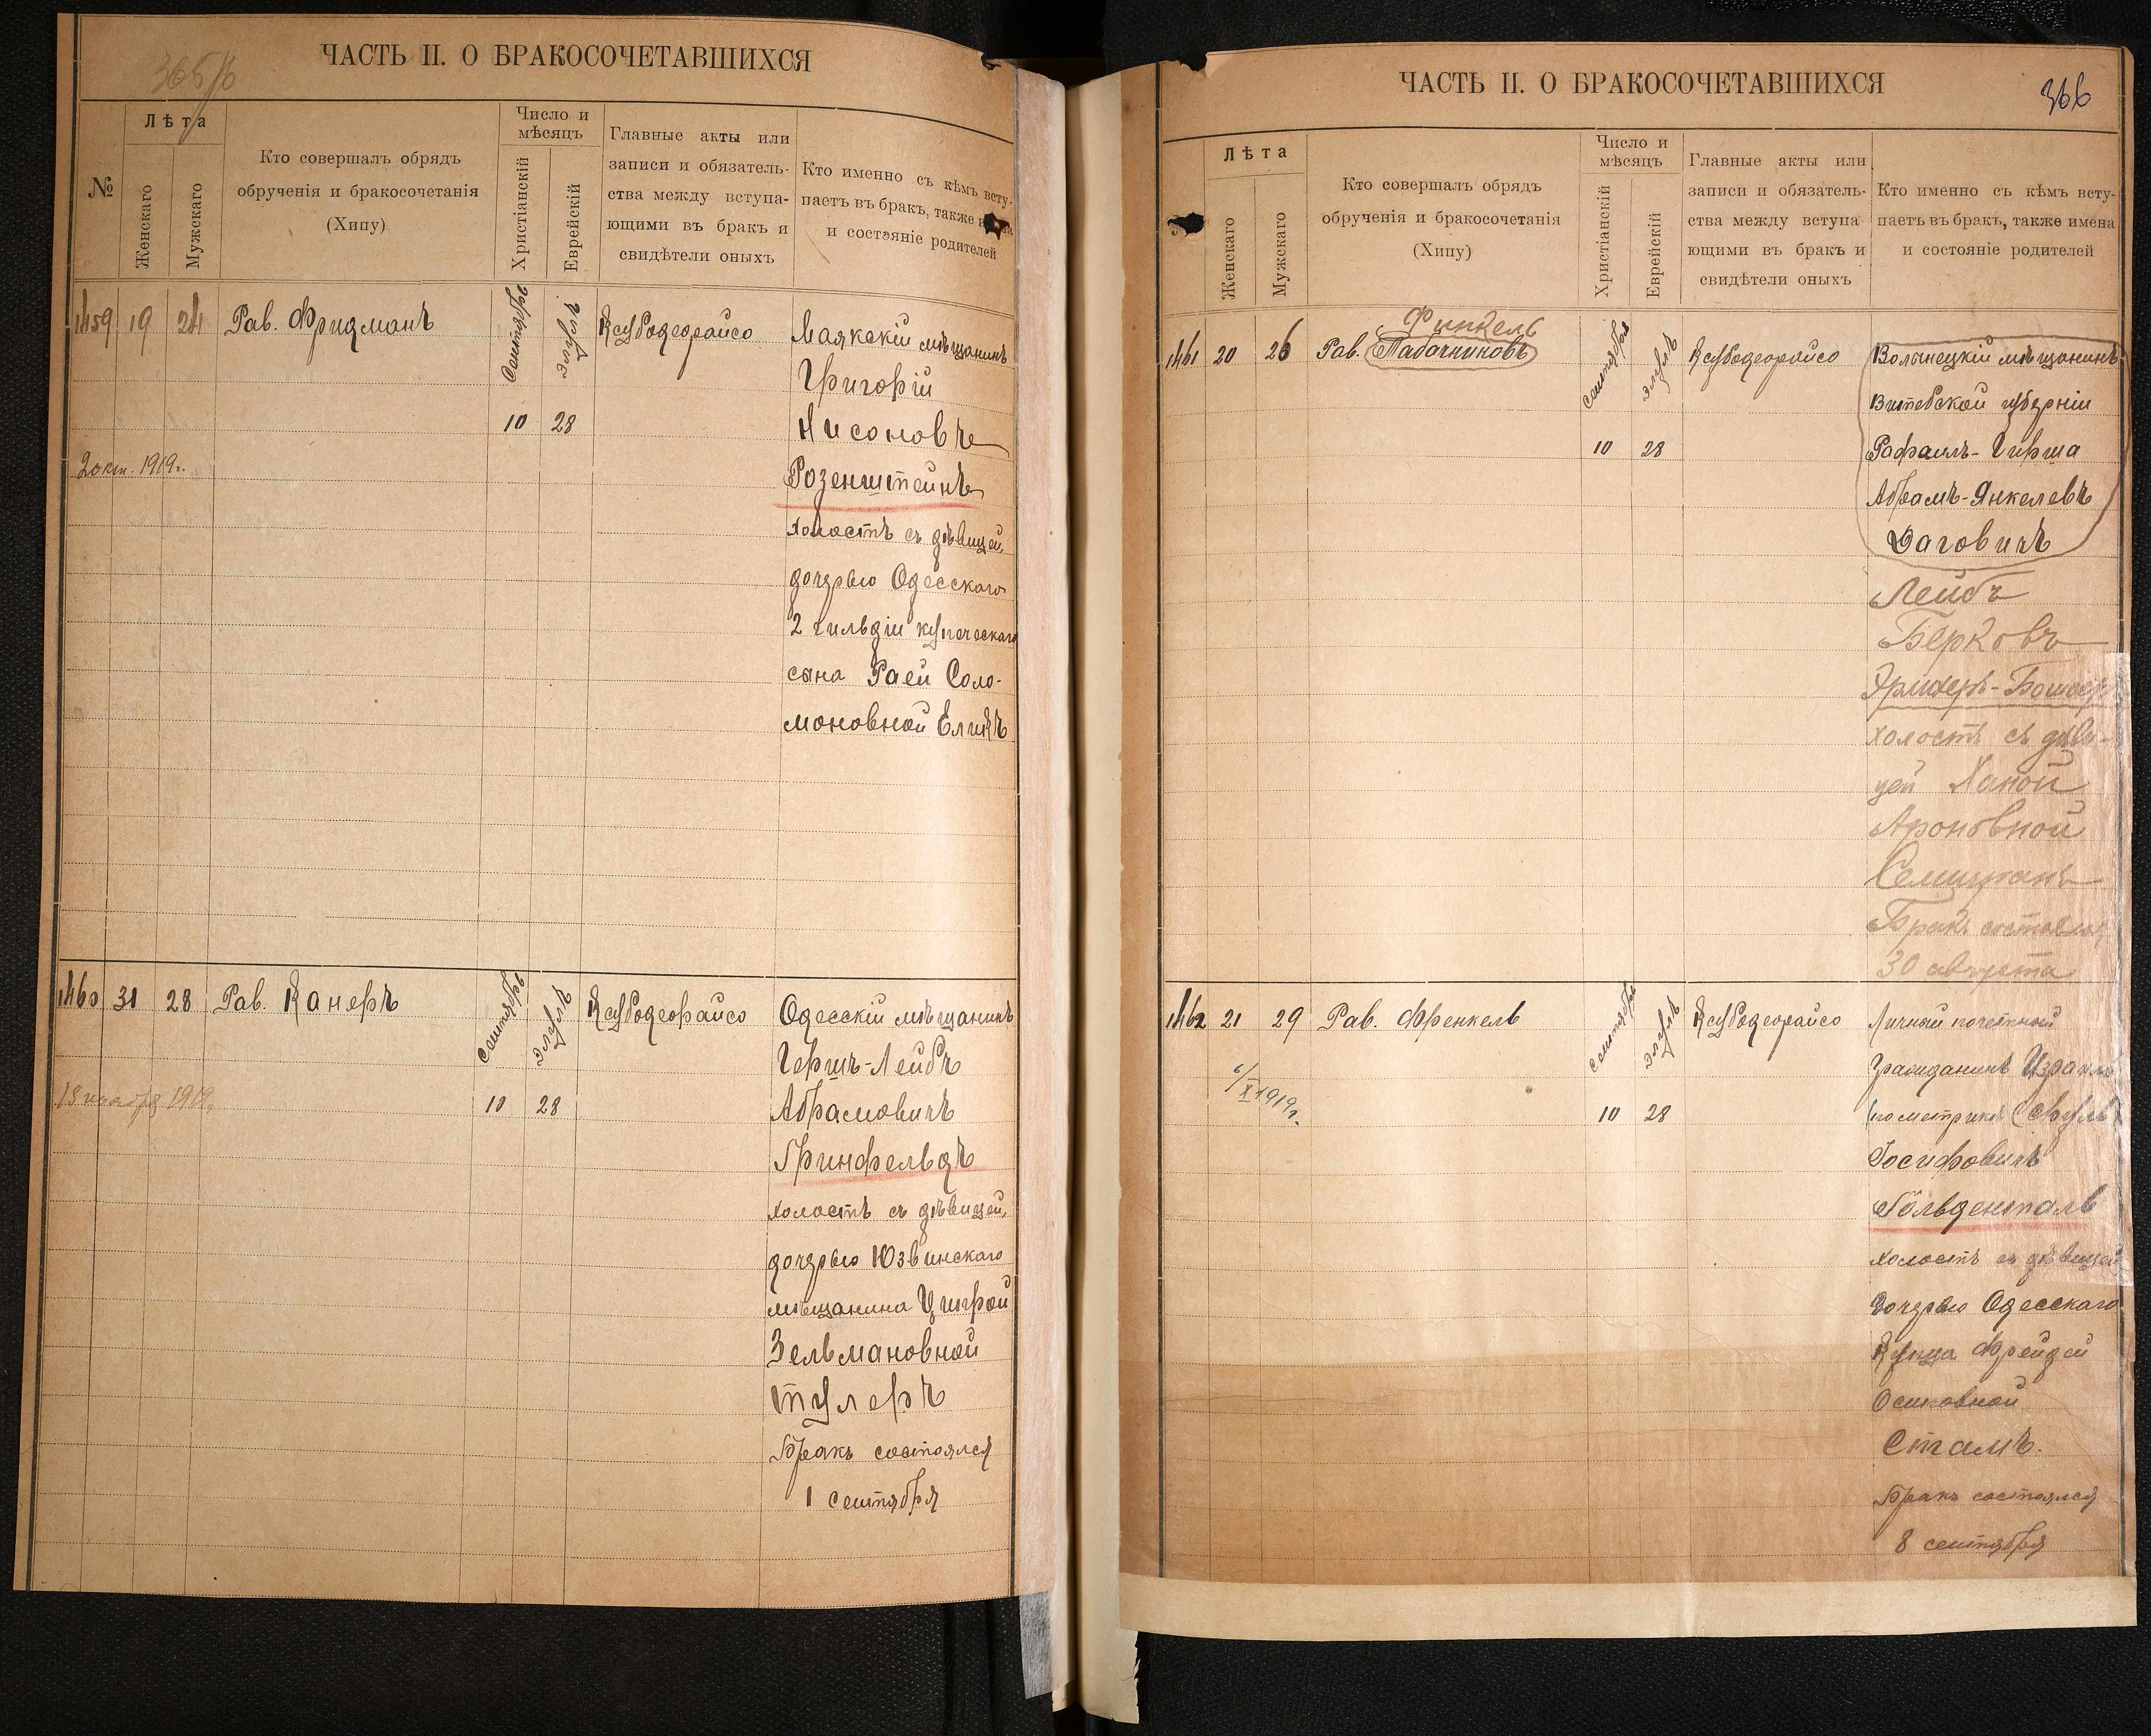 365/б
ЧАСТЬ II. О БРАКОСОЧЕТАВШИХСЯ
№
Лѣта
Женскаго
Мужскаго
Кто совершалъ обрядъ
обрученія и бракосочетанія
(Хипу)
Число и
мѣсяцъ
Христіанскій
Еврейскій
Главные акты или
записи и обязатель-
ства между вступа-
ющими въ бракъ и
свидѣтели оныхъ
Кто именно съ кѣмъ всту-
паетъ въ бракъ, также
и состояніе родителей
1459 19 24 Рав. Фридманъ
Сентября
Элулъ
10 28
2 окт. 1919г.
Ксубодеорайсо
Маякскій мѣщанинъ
Григорій
Нисоновъ
Розенштейнъ
холостъ съ дѣвицей,
дочерью Одесскаго
2 гильдіи купеческаго
сына Раей Соло-
моновной
1460 31 28 Рав. Канеръ
Сентября
Элулъ
10 28
1919
Ксубодеорайсо
Одесскій мѣщанинъ
Гершъ-Лейбъ
Абрамовичъ
Гринфельдъ
холостъ съ дѣвицей,
дочерью Юзвинскаго
мѣщанина Ципрой
Зельмановной
Тулеръ
Бракъ состоялся
1 сентября
ЧАСТЬ II. О БРАКОСОЧЕТАВШИХСЯ
366
Лѣта
Женскаго
Мужскаго
Кто совершалъ обрядъ
обрученія и бракосочетанія
(Хипу)
Число и
мѣсяцъ
Христіанскій
Еврейскій
Главные акты или
записи и обязатель-
ства между вступа
ющими въ бракъ и
свидѣтели оныхъ
Кто именно съ кѣмъ всту-
паетъ въ бракъ, также имена
и состояніе родителей
Финкель
1461 20 26 Рав. Табачниковъ
Сентября
Элулъ
10 28
Ксубодеорайсо
Волынецкій мѣщанинъ
Витебской губерніи
Рафаилъ-Гирша
Абрамъ-Янкелевъ
Лейбъ
Берковъ
холостъ съ дѣви-
цей Ханой
Ароновной
Бракъ состоялся
30 августа
1462 21 29 Рав. Френкель
Сентября
Элулъ
10 28
6/X 1919г.
Ксубодеорайсо
Личный почетный
Гражданинъ Израиль
(по метрикѣ
Іосифовичъ
Гольденталь
холостъ съ дѣвицей
дочерью Одесскаго
Купца Фрейдой
Осиповной
Стамъ.
Бракъ состоялся
8 сентября